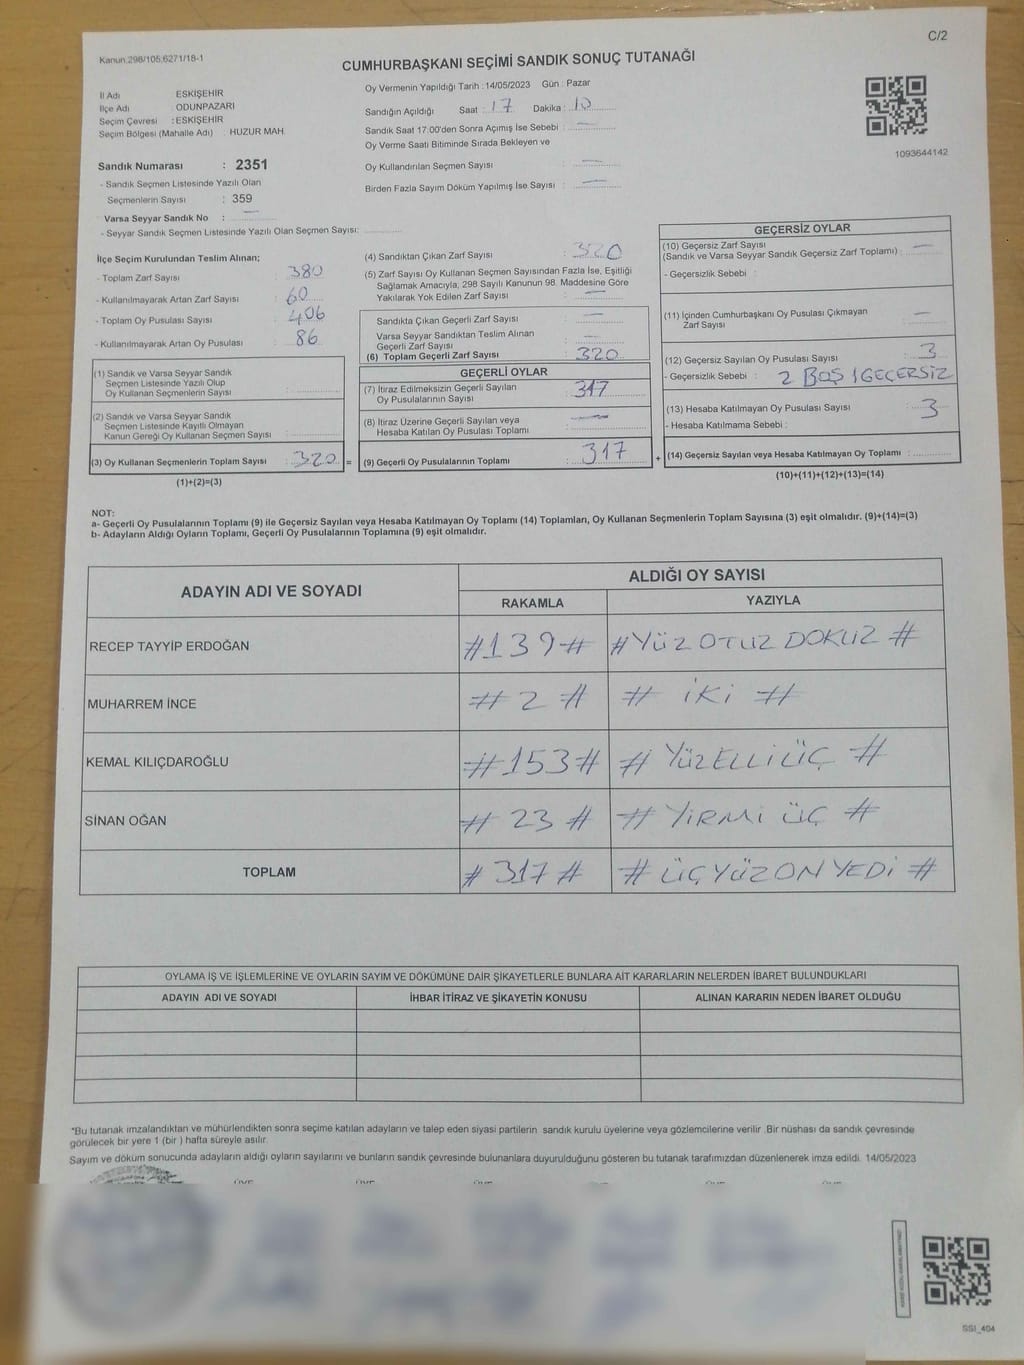 C/2
Kanun.298/105,6271/18-1
CUMHURBAŞKANI SEÇİMİ SANDIK SONUÇ TUTANAĞI
İl Adı ESKİŞEHİR
İlçe Adı : ODUNPAZARI
Seçim Çevresi : ESKİŞEHİR
Seçim Bölgesi (Mahalle Adı) : HUZUR MAH.
Oy Vermenin Yapıldığı Tarih :14/05/2023 Gün : Pazar
Sandığın Açıldığı Saat : 17 Dakika : 10
Sandık Saat 17:00'den Sonra Açımış İse Sebebi : —
Oy Verme Saati Bitiminde Sırada Bekleyen ve
Oy Kullandırılan Seçmen Sayısı : —
Birden Fazla Sayım Döküm Yapılmış İse Sayısı : —
1093644142
Sandık Numarası : 2351
- Sandık Seçmen Listesinde Yazılı Olan
Seçmenlerin Sayısı : 359
Varsa Seyyar Sandık No : —
- Seyyar Sandık Seçmen Listesinde Yazılı Olan Seçmen Sayısı:
İlçe Seçim Kurulundan Teslim Alınan;
- Toplam Zarf Sayısı : 380
- Kullanılmayarak Artan Zarf Sayısı : 60
- Toplam Oy Pusulası Sayısı : 406
- Kullanılmayarak Artan Oy Pusulası : 86
(1) Sandık ve Varsa Seyyar Sandık
Seçmen Listesinde Yazılı Olup
Oy Kullanan Seçmenlerin Sayısı :
(2) Sandık ve Varsa Seyyar Sandık
Seçmen Listesinde Kayıtlı Olmayan
Kanun Gereği Oy Kullanan Seçmen Sayısı :
(3) Oy Kullanan Seçmenlerin Toplam Sayısı : 320 =
(1)+(2)=(3)
(4) Sandıktan Çıkan Zarf Sayısı : 320
(5) Zarf Sayısı Oy Kullanan Seçmen Sayısından Fazla İse, Eşitliği
Sağlamak Amacıyla, 298 Sayılı Kanunun 98. Maddesine Göre
Yakılarak Yok Edilen Zarf Sayısı : —
Sandıkta Çıkan Geçerli Zarf Sayısı : —
Varsa Seyyar Sandıktan Teslim Alınan
Geçerli Zarf Sayısı : —
(6) Toplam Geçerli Zarf Sayısı : 320
GEÇERLİ OYLAR
(7) İtiraz Edilmeksizin Geçerli Sayılan
Oy Pusulalarının Sayısı : 317
(8) İtiraz Üzerine Geçerli Sayılan veya
Hesaba Katılan Oy Pusulası Toplamı : —
(9) Geçerli Oy Pusulalarının Toplamı : 317 +
GEÇERSİZ OYLAR
(10) Geçersiz Zarf Sayısı
(Sandık ve Varsa Seyyar Sandık Geçersiz Zarf Toplamı) : —
- Geçersizlik Sebebi :
(11) İçinden Cumhurbaşkanı Oy Pusulası Çıkmayan
Zarf Sayısı : —
(12) Geçersiz Sayılan Oy Pusulası Sayısı : 3
- Geçersizlik Sebebi : 2 BOŞ 1 GEÇERSİZ
(13) Hesaba Katılmayan Oy Pusulası Sayısı : 3
- Hesaba Katılmama Sebebi :
(14) Geçersiz Sayılan veya Hesaba Katılmayan Oy Toplamı :
(10)+(11)+(12)+(13)=(14)
NOT:
a- Geçerli Oy Pusulalarının Toplamı (9) ile Geçersiz Sayılan veya Hesaba Katılmayan Oy Toplamı (14) Toplamları, Oy Kullanan Seçmenlerin Toplam Sayısına (3) eşit olmalıdır. (9)+(14)=(3)
b- Adayların Aldığı Oyların Toplamı, Geçerli Oy Pusulalarının Toplamına (9) eşit olmalıdır.
ADAYIN ADI VE SOYADI ALDIĞI OY SAYISI
RAKAMLA YAZIYLA
RECEP TAYYİP ERDOĞAN #139# #YÜZ OTUZ DOKUZ #
MUHARREM İNCE # 2 # # İKİ #
KEMAL KILIÇDAROĞLU #153# # YÜZELLİÜÇ #
SİNAN OĞAN # 23 # # YİRMİ ÜÇ #
TOPLAM # 317 # # ÜÇYÜZONYEDİ #
OYLAMA İŞ VE İŞLEMLERİNE VE OYLARIN SAYIM VE DÖKÜMÜNE DAİR ŞİKAYETLERLE BUNLARA AİT KARARLARIN NELERDEN İBARET BULUNDUKLARI
ADAYIN ADI VE SOYADI İHBAR İTİRAZ VE ŞİKAYETİN KONUSU ALINAN KARARIN NEDEN İBARET OLDUĞU
*Bu tutanak imzalandıktan ve mühürlendikten sonra seçime katılan adayların ve talep eden siyasi partilerin sandık kurulu üyelerine veya gözlemcilerine verilir .Bir nüshası da sandık çevresinde
görülecek bir yere 1 (bir ) hafta süreyle asılır.
Sayım ve döküm sonucunda adayların aldığı oyların sayılarını ve bunların sandık çevresinde bulunanlara duyurulduğunu gösteren bu tutanak tarafımızdan düzenlenerek imza edildi. 14/05/2023
SSI_404